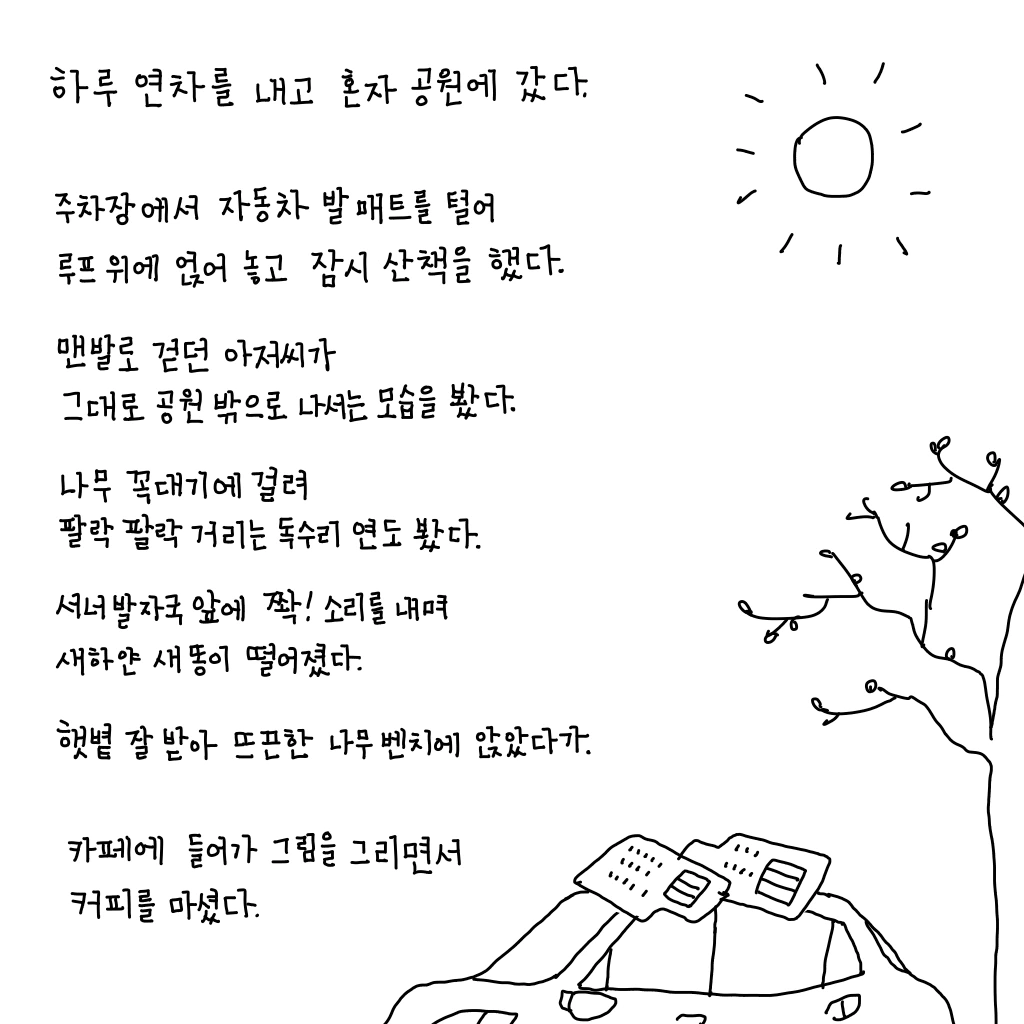 하루 연차를 내고 혼자 공원에 갔다.
주차장에서 자동차 발 매트를 털어
루프 위에 얹어 놓고 잠시 산책을 했다.
맨발로 걷던 아저씨가
그대로 공원 밖으로 나서는 모습을 봤다.
나무 꼭대기에 걸려
팔락 팔락 거리는 독수리 연도 봤다.
서너 발자국 앞에 쫙! 소리를 내며
새하얀 새똥이 떨어졌다.
햇볕 잘 받아 뜨끈한 나무 벤치에 앉았다가.
카페에 들어가 그림을 그리면서
커피를 마셨다.